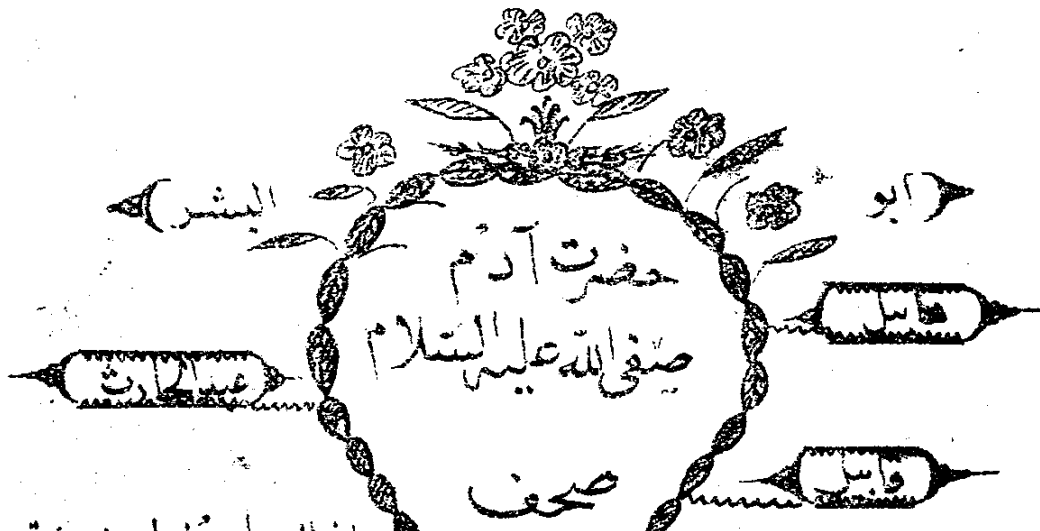 ابو البشر
حضرت آدم
صفی الله علیه السلام
هابیل
عبدالحارث
صحف
قابیل